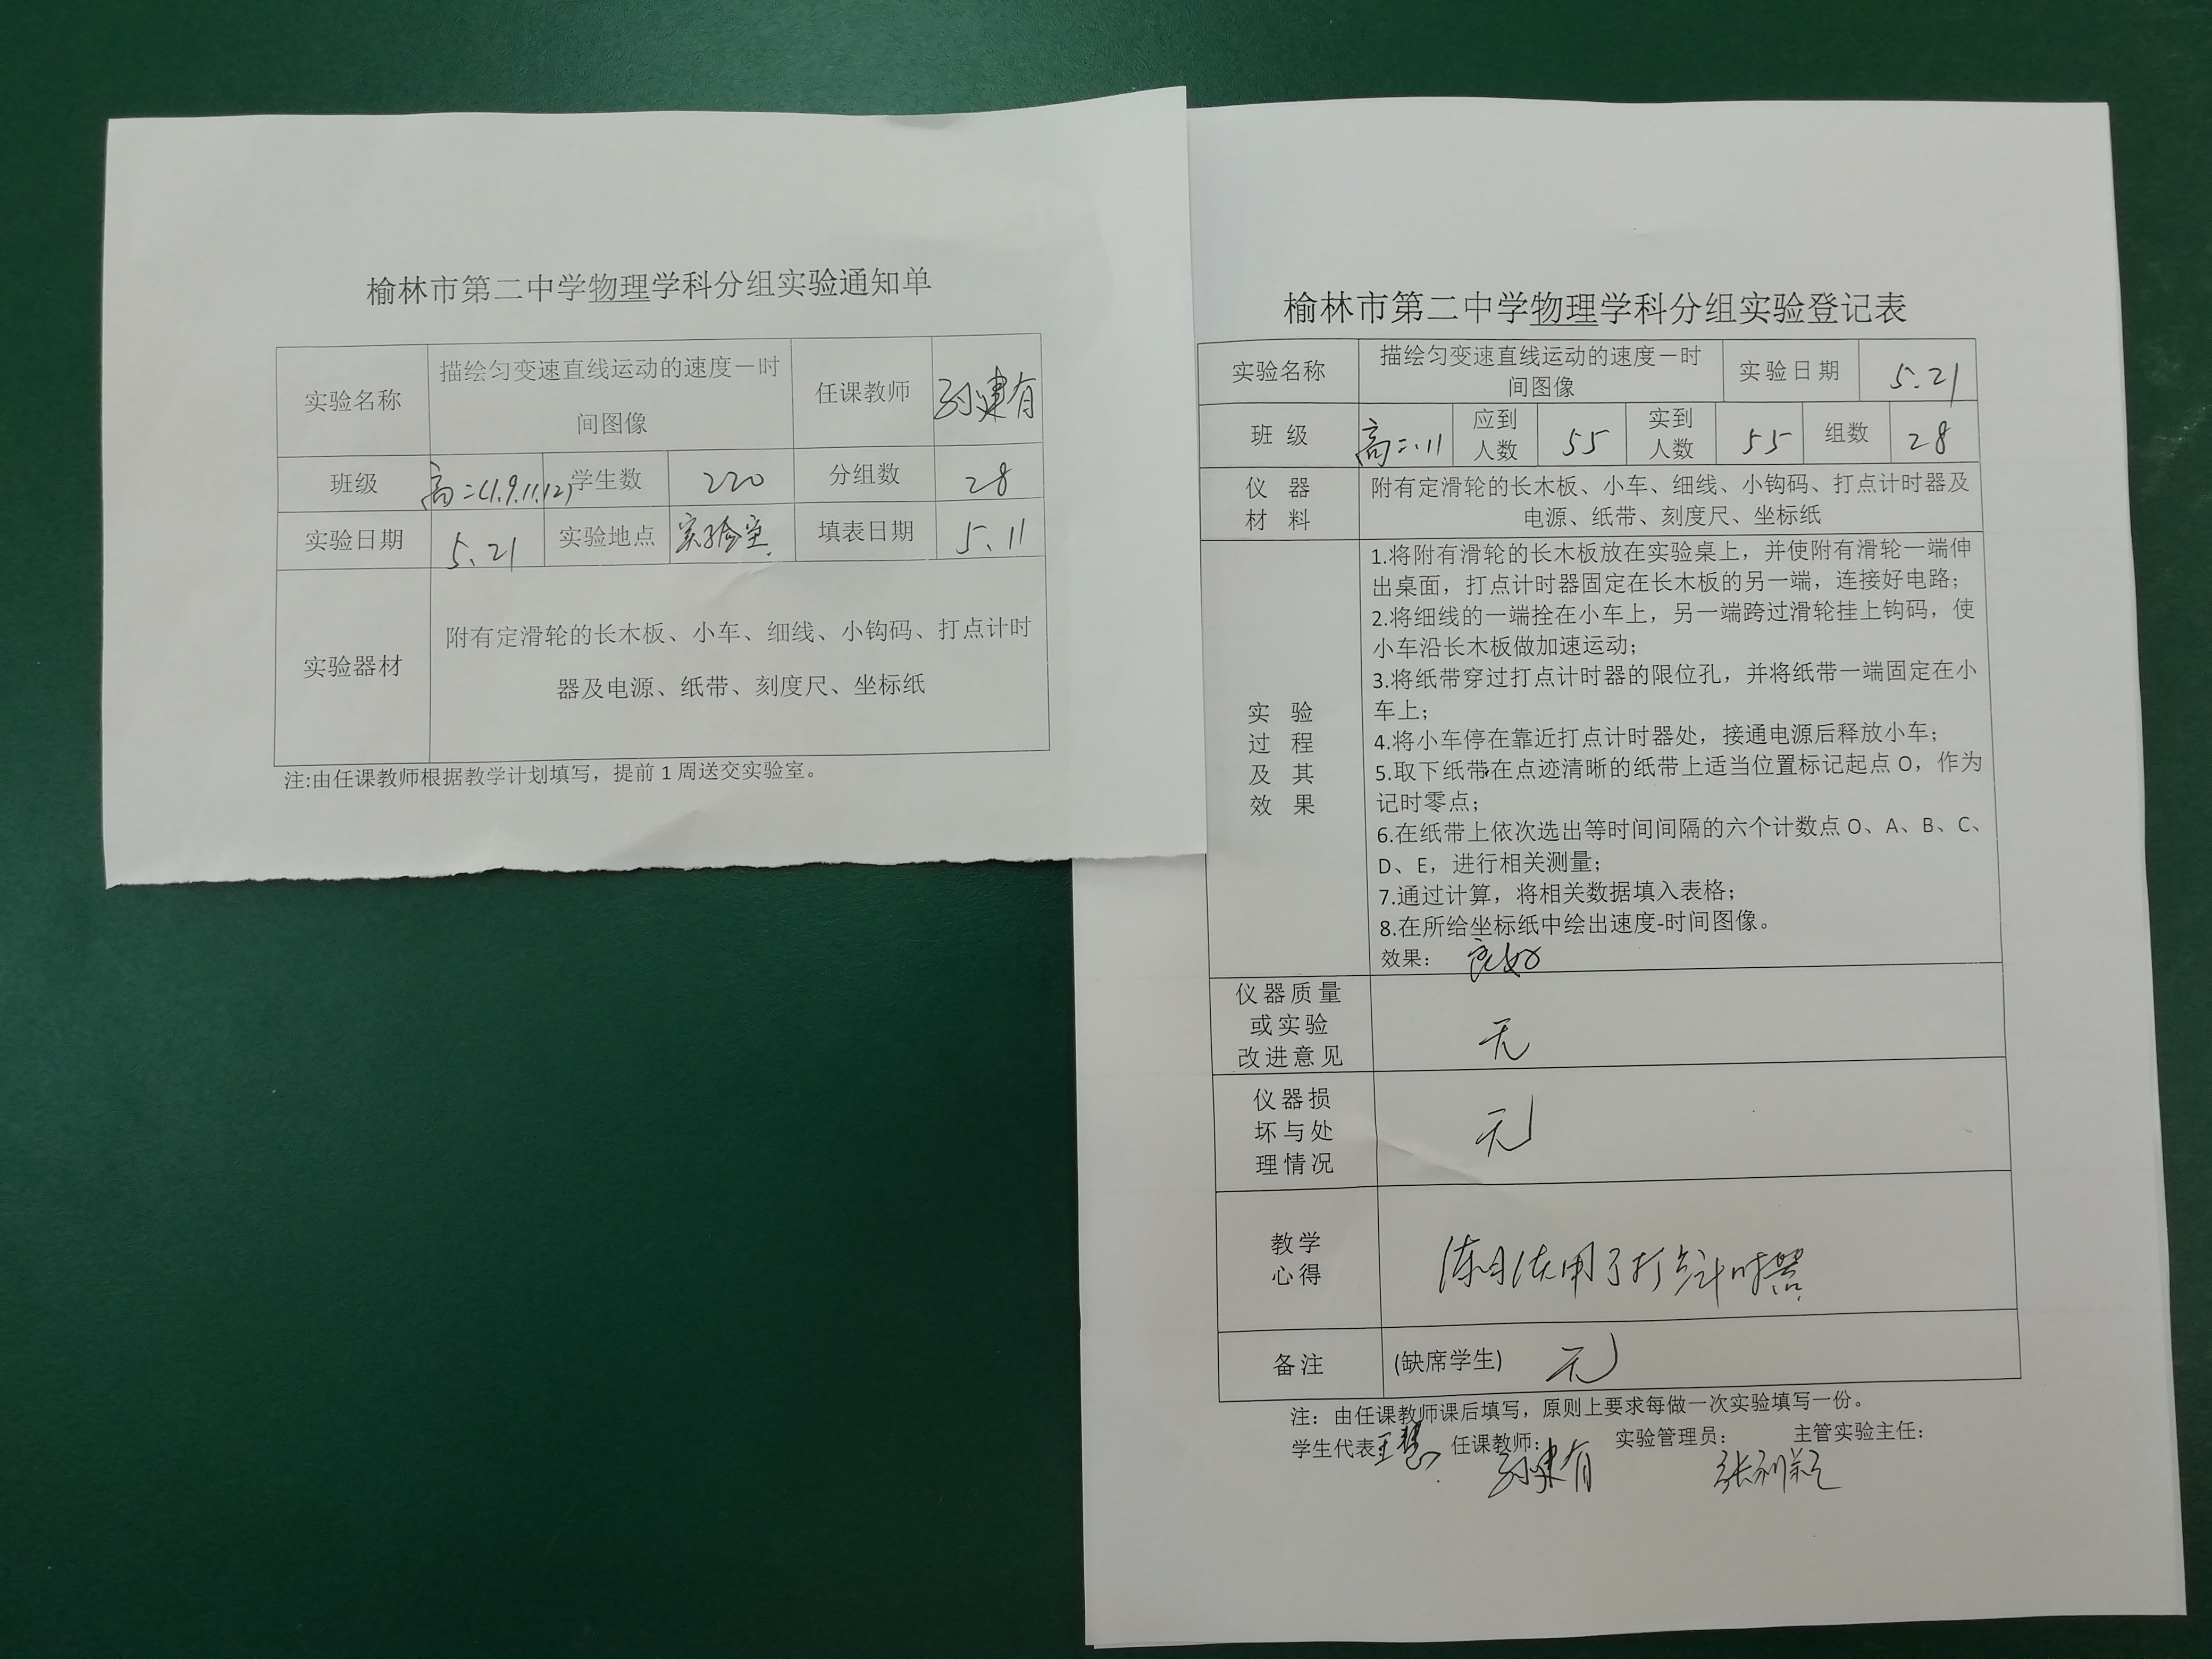 榆林市第二中学物理学科分组实验通知单
实验名称
描绘匀变速直线运动的速度－时
间图像
任课教师
班级
高二(1.9.11.12)
学生数
220
分组数
28
实验日期
5.21
实验地点
实验室
填表日期
5.11
实验器材
附有定滑轮的长木板、小车、细线、小钩码、打点计时
器及电源、纸带、刻度尺、坐标纸
注:由任课教师根据教学计划填写，提前 1 周送交实验室。
榆林市第二中学物理学科分组实验登记表
实验名称
描绘匀变速直线运动的速度－时
间图像
实验日期
5.21
班 级
高二.11
应到
人数
55
实到
人数
55
组数
28
仪 器
材 料
附有定滑轮的长木板、小车、细线、小钩码、打点计时器及
电源、纸带、刻度尺、坐标纸
实 验
过 程
及 其
效 果
1.将附有滑轮的长木板放在实验桌上，并使附有滑轮一端伸
出桌面，打点计时器固定在长木板的另一端，连接好电路；
2.将细线的一端拴在小车上，另一端跨过滑轮挂上钩码，使
小车沿长木板做加速运动；
3.将纸带穿过打点计时器的限位孔，并将纸带一端固定在小
车上；
4.将小车停在靠近打点计时器处，接通电源后释放小车；
5.取下纸带在点迹清晰的纸带上适当位置标记起点 O，作为
记时零点；
6.在纸带上依次选出等时间间隔的六个计数点 O、A、B、C、
D、E，进行相关测量；
7.通过计算，将相关数据填入表格；
8.在所给坐标纸中绘出速度-时间图像。
效果： 良好
仪器质量
或实验
改进意见
无
仪器损
坏与处
理情况
无
教学
心得
用了打点计时器
备注
(缺席学生) 无
注：由任课教师课后填写，原则上要求每做一次实验填写一份。
学生代表 王慧 任课教师： 实验管理员： 主管实验主任：